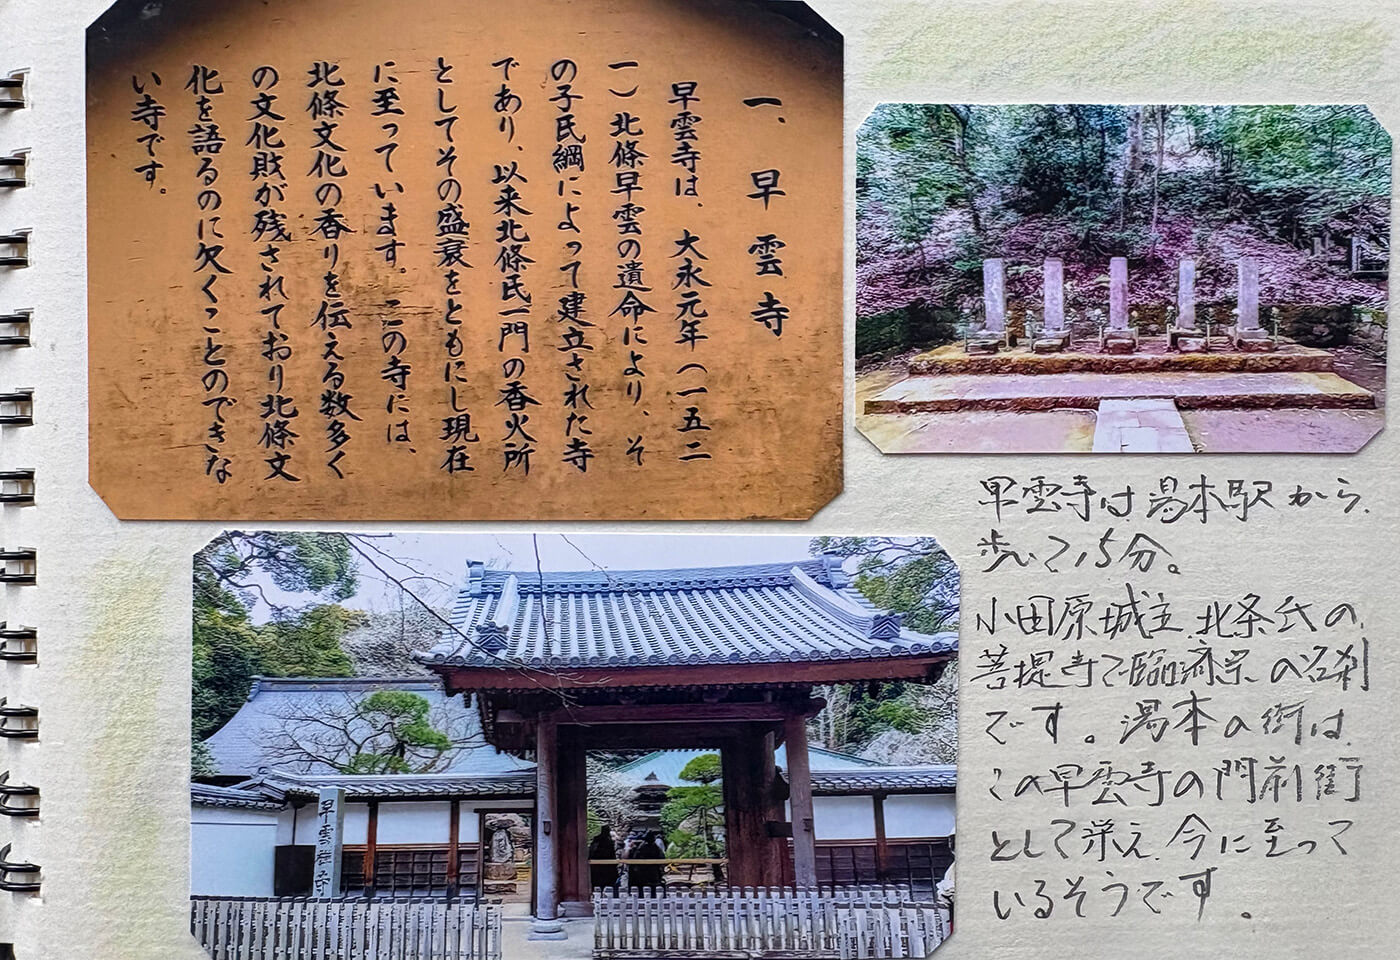 一、早雲寺
早雲寺は、大永元年(一五二
一)北條早雲の遺命により、そ
の子氏綱によって建立された寺
であり、以来北條氏一門の香火所
としてその盛衰をともにし現在
に至っています。この寺には、
北條文化の香りを伝える数多く
の文化財が残されており北條文
化を語るのに欠くことのできな
い寺です。
早雲寺は湯本駅から、
歩いて15分。
小田原城主、北条氏の
菩提寺で臨済宗の名刹
です。湯本の街は
この早雲寺の門前街
として栄え、今に至って
いるそうです。
早雲禅寺